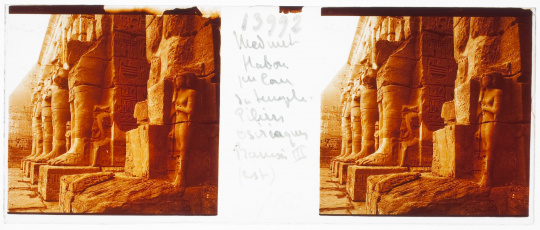 13992
Medinet
Habou
1re Cour
du temple.
Piliers
osiriaques
Ramsès III
(est)